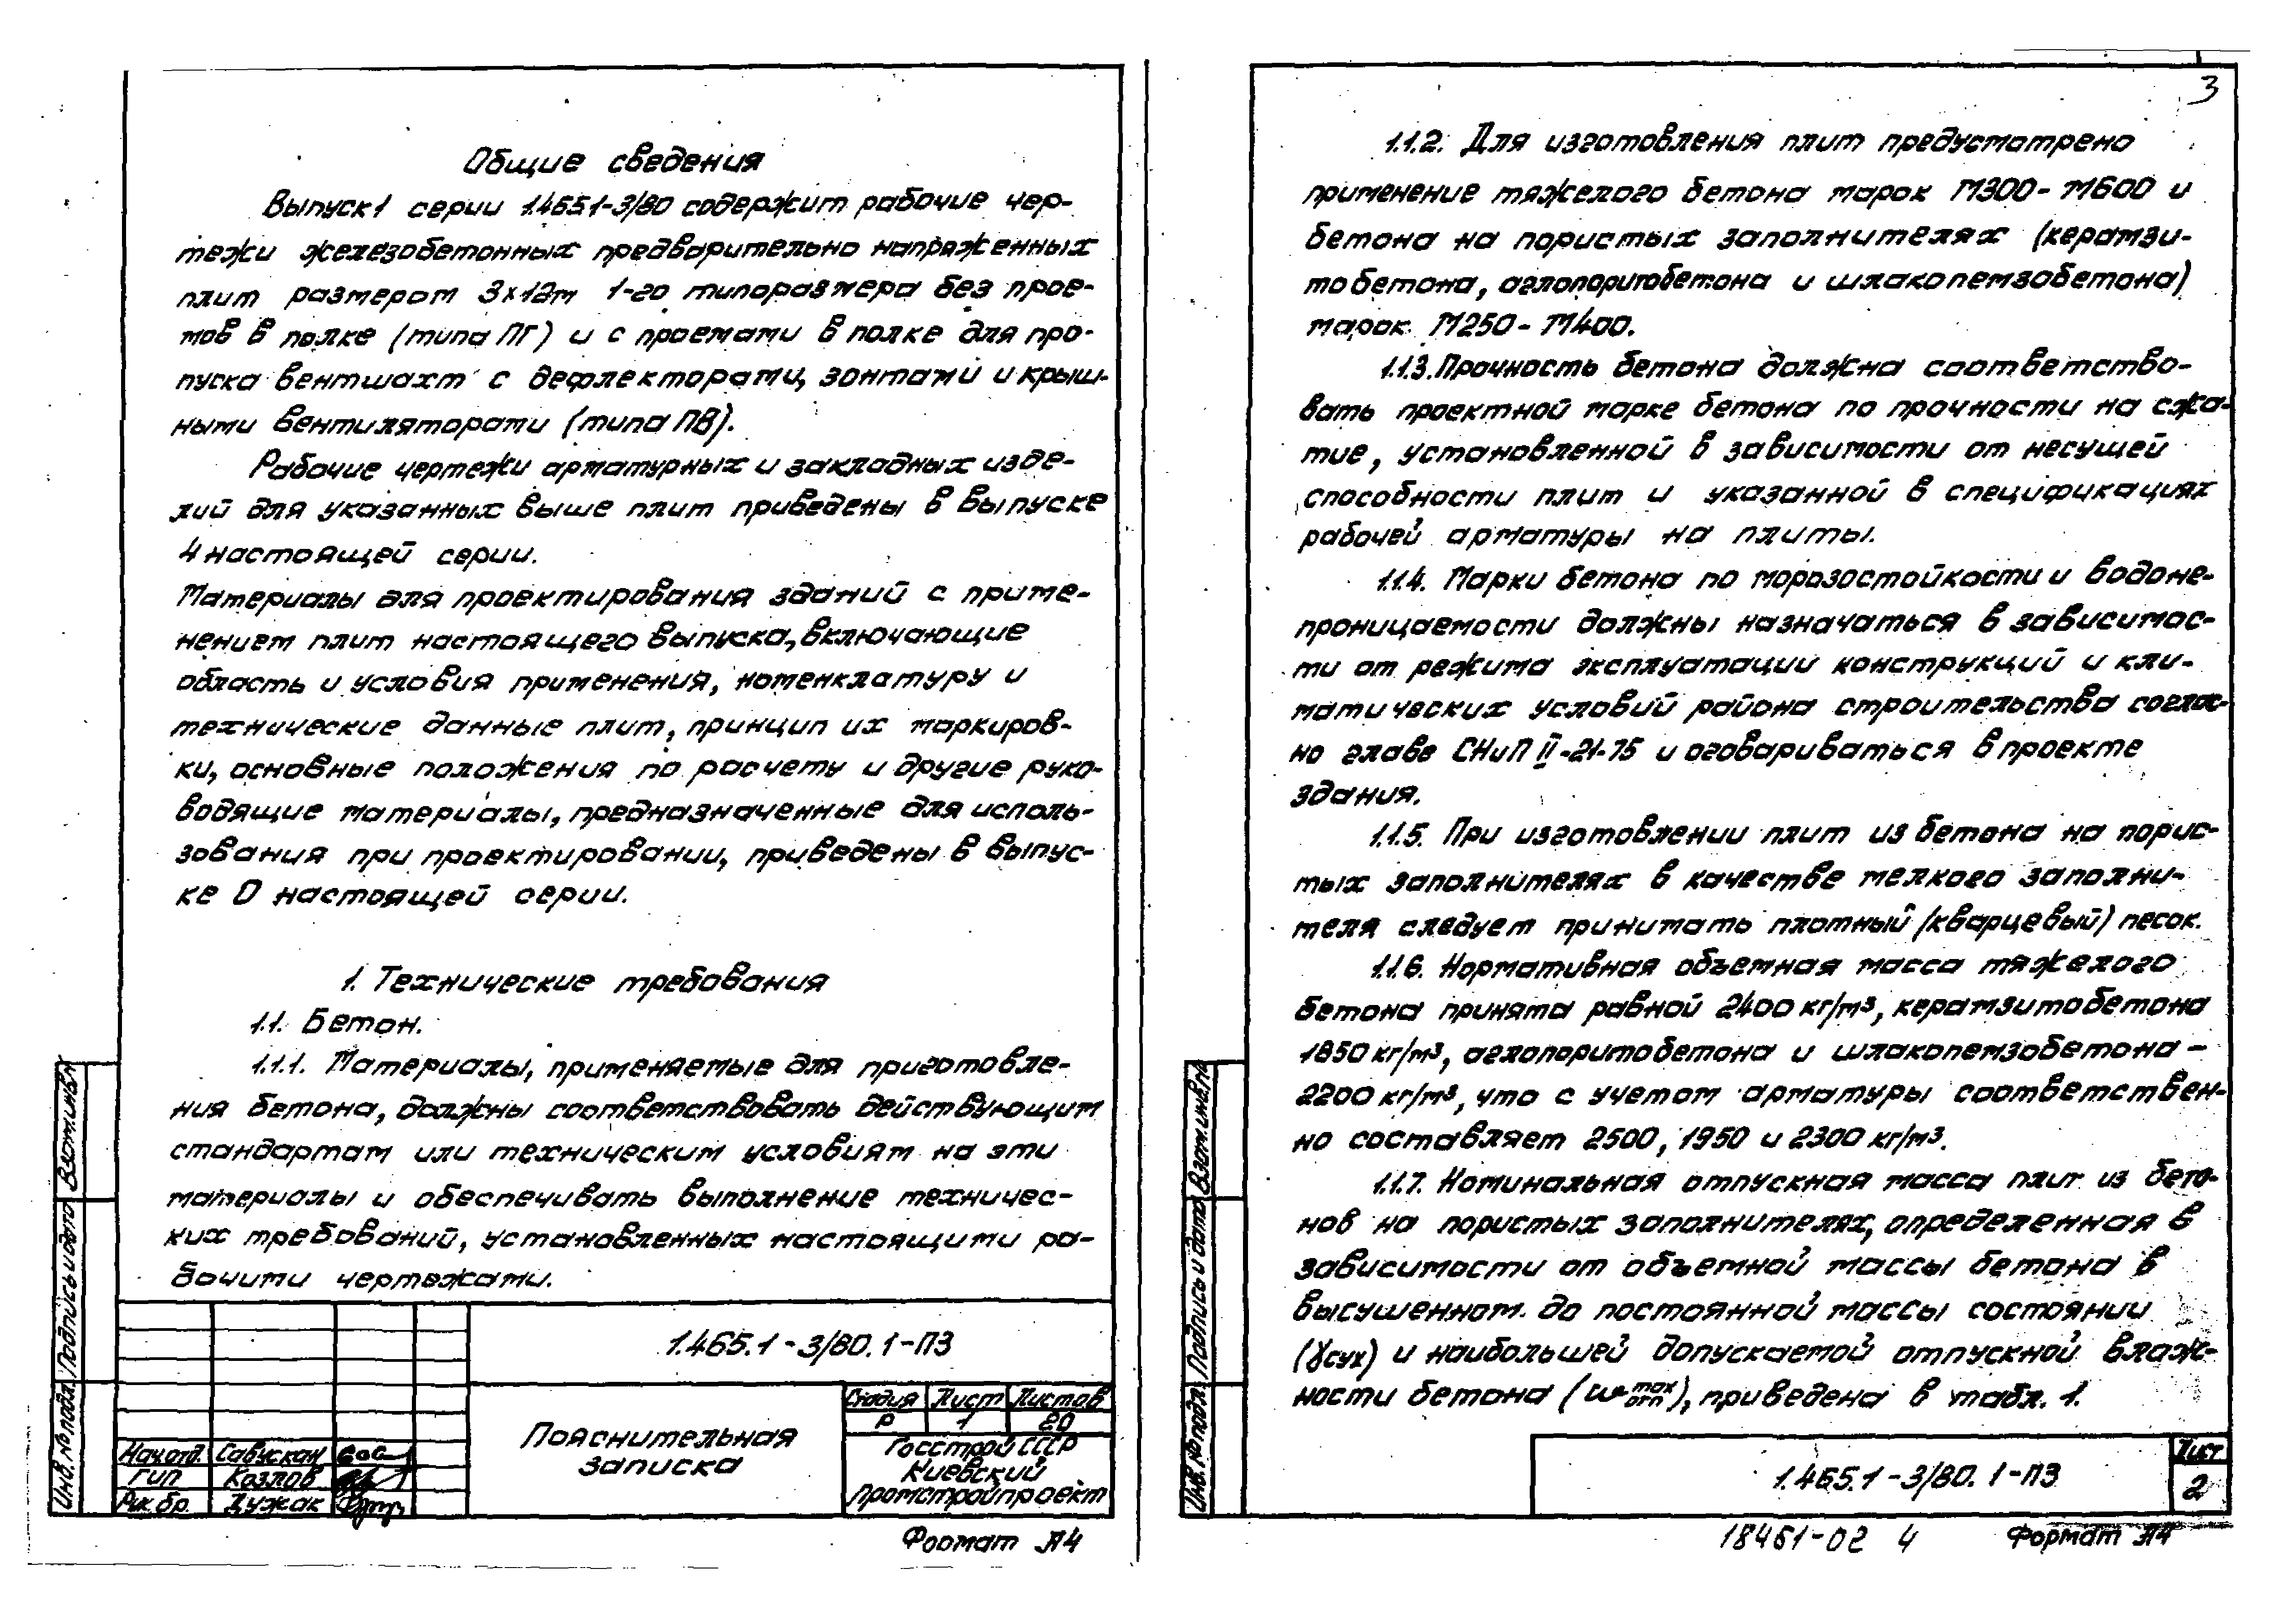 Общие сведения
Выпуск 1 серии 1.465.1-3/80 содержит рабочие чер-
тежи железобетонных предварительно напряженных
плит размером 3х12м 1-го типоразмера без прое-
мов в полке (типа ПГ) и с проемами в полке для про-
пуска вентшахт с дефлекторами, зонтами и крыш-
ными вентиляторами (типа ПВ).
Рабочие чертежи арматурных и закладных изде-
лий для указанных выше плит приведены в выпуске
4 настоящей серии.
Материалы для проектирования зданий с приме-
нением плит настоящего выпуска, включающие
область и условия применения, номенклатуру и
технические данные плит, принцип их маркиров-
ки, основные положения по расчету и другие руко-
водящие материалы, предназначенные для исполь-
зования при проектировании, приведены в выпус-
ке 0 настоящей серии.
1. Технические требования
1.1. Бетон.
1.1.1. Материалы, применяемые для приготовле-
ния бетона, должны соответствовать действующим
стандартам или техническим условиям на эти
материалы и обеспечивать выполнение техничес-
ких требований, установленных настоящими ра-
бочими чертежами.
1.465.1-3/80.1-ПЗ
Пояснительная
записка
Стадия Лист Листов
Р 1 20
Госстрой СССР
Киевский
Промстройпроект
Нач.отд. Савускан
ГИП Козлов
Рук.бр. Дужак
Инв. № подл. Подпись и дата Взам.инв.№
Формат А4
3
1.1.2. Для изготовления плит предусмотрено
применение тяжелого бетона марок М300-М600 и
бетона на пористых заполнителях (керамзи-
тобетона, аглопоритобетона и шлакопемзобетона)
марок М250-М400.
1.1.3. Прочность бетона должна соответство-
вать проектной марке бетона по прочности на сжа-
тие, установленной в зависимости от несущей
способности плит и указанной в спецификациях
рабочей арматуры на плиты.
1.1.4. Марки бетона по морозостойкости и водоне-
проницаемости должны назначаться в зависимос-
ти от режима эксплуатации конструкций и кли-
матических условий района строительства соглас-
но главе СНиП II-21-75 и оговариваться в проекте
здания.
1.1.5. При изготовлении плит из бетона на порис-
тых заполнителях в качестве мелкого заполни-
теля следует принимать плотный (кварцевый) песок.
1.1.6. Нормативная объемная масса тяжелого
бетона принята равной 2400 кг/м³, керамзитобетона
1850 кг/м³, аглопоритобетона и шлакопемзобетона -
2200 кг/м³, что с учетом арматуры соответствен-
но составляет 2500, 1950 и 2300 кг/м³.
1.1.7. Номинальная отпускная масса плит из бето-
нов на пористых заполнителях, определенная в
зависимости от объемной массы бетона в
высушенном до постоянной массы состоянии
(γсух) и наибольшей допускаемой отпускной влаж-
ности бетона (ω max отп), приведена в табл. 1.
Инв. № подл. Подпись и дата Взам.инв.№
1.465.1-3/80.1-ПЗ
Лист
2
18461-02 4
Формат А4